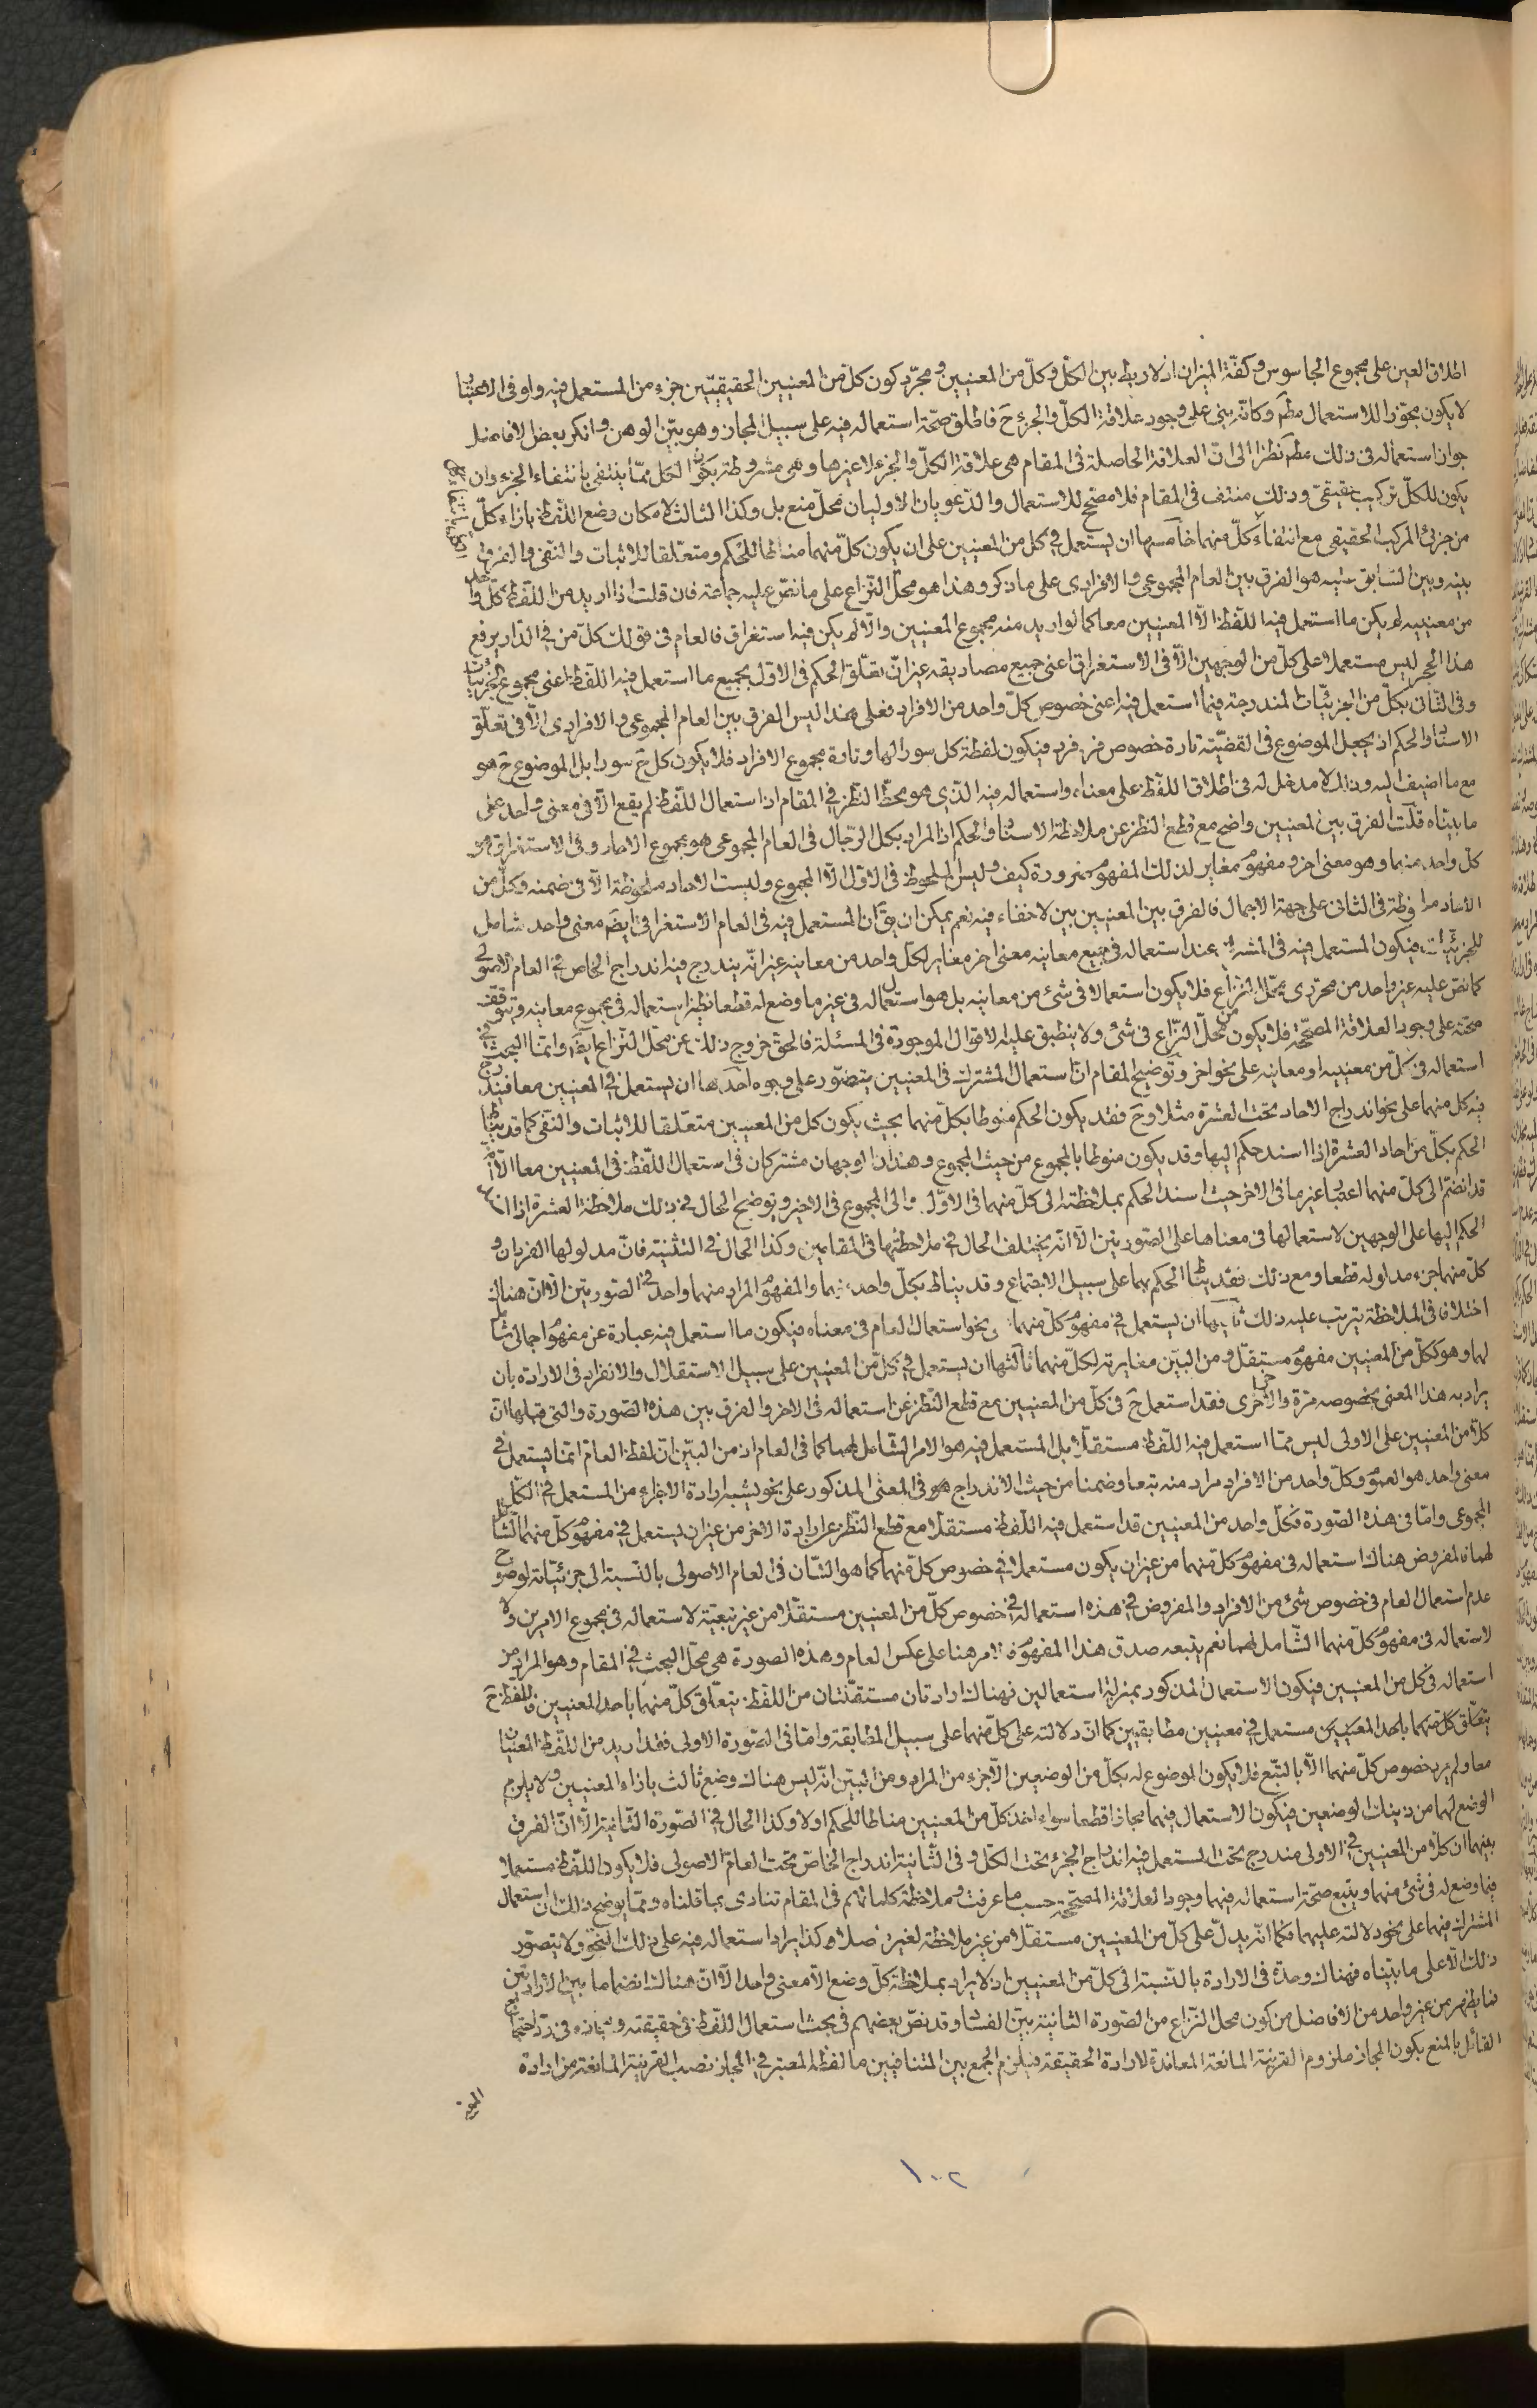 اطلاق العين على مجموع الجاسوس وكفّة الميزان اذ لا ربط بين الكلّ وكلّ من المعنيين ومجرّد كون كلّ من المعنيين الحقيقيّين جزء من المستعمل فيه ولو فى الاعتبار
لا يكون مجوّزا للاستعمال مطم وكانّه بنى على وجود علاقة الكلّ والجزء ح فاطلق صحّة استعماله فيه على سبيل المجاز وهو بيّن الوهن وانكر بعض الافاضل
جواز استعماله فى ذلك مطم نظرا الى انّ العلاقة الحاصلة فى المقام هى علاقة الكلّ والجزء لا غيرها وهى مشروطة بكون الكل ممّا ينتفى بانتفاء الجزء وان
يكون للكلّ تركيب حقيقىّ وذلك منتف فى المقام فلا مصحّح للاستعمال والدّعويان الاوليان محلّ منع بل وكذا الثالثة لامكان وضع اللّفظ بازاء كلّ
من جزئى المركب الحقيقى مع انتفاء كلّ منهما خامسها ان يستعمل فى كل من المعنيين على ان يكون كلّ منهما مناطا للحكم ومتعلّقا للاثبات والنّفى والفرق
بينه وبين السّابق عليه هو الفرق بين العام المجموعى والافرادى على ما ذكر وهذا هو محلّ النّزاع على ما نصّ عليه جماعة فان قلت اذا اريد من اللّفظ كلّ واحد
من معنييه لم يكن ما استعمل فيه اللّفظ الّا المعنيين معا كما لو اريد منه مجموع المعنيين والّا لم يكن فيه استغراق فالعام فى قولك كلّ من فى الدّار يرفع
هذا الحجر ليس مستعملا على كلّ من الوجهين الّا فى الاستغراق اعنى جميع مصاديقه غير انّ تعلّق الحكم فى الاوّل بجميع ما استعمل فيه اللّفظ اعنى مجموع الجزئيّات
وفى الثّانى بكلّ من الجزئيّات المندرجة فيما استعمل فيه اعنى خصوص كلّ واحد من الافراد فعلى هذا ليس الفرق بين العام المجموعى والافرادى الّا فى تعلّق
الاسناد والحكم اذ يجعل الموضوع فى القضيّة تارة خصوص فرد فرد فيكون لفظة كل سورا لها وتارة مجموع الافراد فلا يكون كل ح سورا بل الموضوع ح هو
مع ما اضيف اليه وذلك لا مدخل له فى اطلاق اللّفظ على معناه واستعماله فيه الّذى هو محطّ النّظر فى المقام اذ استعمال اللّفظ لم يقع الّا فى معنى واحد على
ما بيّناه قلت الفرق بين المعنيين واضح مع قطع النّظر عن ملاحظة الاسناد والحكم اذ المراد بكل الرّجال فى العام المجموعى هو مجموع الاحاد وفى الاستغراقى هو
كلّ واحد منهما وهو معنى اخر ومفهوم مغاير لذلك المفهوم ضرورة كيف وليس الملحوظ فى الاوّل الّا المجموع وليست الاحاد ملحوظة الّا فى ضمنه وكلّ من
الاحاد ملحوظة فى الثانى على جهة الاجمال فالفرق بين المعنيين بيّن لا خفاء فيه نعم يمكن ان يق انّ المستعمل فيه فى العام الاستغراقى ايضا معنى واحد شامل
للجزئيّات فيكون المستعمل فيه فى المشترك عند استعماله فى جميع معانيه معنى اخر مغاير لكل واحد من معانيه غير انّه يندرج فيه اندراج الخاص فى العام الاصولى
كما نصّ عليه غير واحد من محرّرى محلّ النّزاع فلا يكون استعمالا فى شئ من معانيه بل هو استعماله فى غير ما وضع له قطعا نظير استعماله فى مجموع معانيه وتوقف
صحّته على وجود العلاقة المصحّحة فلا يكون من محلّ النّزاع فى شئ ولا ينطبق عليه الاقوال الموجودة فى المسئلة فالحقّ خروج ذلك عن محلّ النّزاع ايضا وانّما البحث فى
استعماله فى كلّ من معنييه او معانيه على نحو اخر وتوضيح المقام انّ استعمال المشترك فى المعنيين يتصوّر على وجوه احدها ان يستعمل فى المعنيين معا فيندرج
فيه كل منهما على نحو اندراج الاحاد تحت العشرة مثلا وح فقد يكون الحكم منوطا بكلّ منهما بحيث يكون كل من المعنيين متعلّقا للاثبات والنّفى كما قد يناط
الحكم بكلّ من احاد العشرة اذا اسند حكم اليها وقد يكون منوطا بالمجموع من حيث المجموع وهذان الوجهان مشتركان فى استعمال اللّفظ فى المعنيين معا الّا انّه
قد انضمّ الى كلّ منهما اعتبار غير ما فى الاخر حيث اسند الحكم بملاحظته الى كلّ منهما فى الاوّل والى المجموع فى الاخير وتوضيح الحال فى ذلك ملاحظة العشرة اذا
الحكم اليها على الوجهين لاستعمالها فى معناها على الصّورتين الّا انّه يختلف الحال فى ملاحظتها فى المقامين وكذا الحال فى التثنية فانّ مدلولها الفردان و
كلّ منهما جزء مدلوله قطعا ومع ذلك فقد يناط الحكم بهما على سبيل الاجتماع وقد يناط بكلّ واحد منهما والمفهوم المراد منهما واحد فى الصّورتين الّا انّ هناك
اختلافا فى الملاحظة يترتب عليه ذلك ثانيها ان يستعمل فى مفهوم كلّ منهما على نحو استعمال العام فى معناه فيكون ما استعمل فيه عبارة عن مفهوم اجمالى شامل
لهما وهو ككلّ من المعنيين مفهوم مستقلّ ومن البيّن مغايرته لكلّ منهما ثالثها ان يستعمل فى كلّ من المعنيين على سبيل الاستقلال والانفراد فى الارادة بان
يراد به هذا المعنى بخصوصه مرّة والاخرى اخرى فقد استعمل ح فى كلّ من المعنيين مع قطع النّظر عن استعماله فى الاخر والفرق بين هذه الصّورة والتى قبلها انّ
كلّا من المعنيين على الاولى ليس ممّا استعمل فيه اللّفظ مستقلّا بل المستعمل فيه هو الامر الشّامل لهما كما فى العام اذ من البيّن انّ لفظ العام انّما يستعمل فى
معنى واحد هو العموم وكلّ واحد من الافراد مراد منه تبعا وضمنا من حيث الاندراج هو فى المعنى المذكور على نحو يشبه ارادة الاجزاء من المستعمل فى الكلّ
المجموعى وامّا فى هذه الصّورة فكلّ واحد من المعنيين قد استعمل فيه اللّفظ مستقلّا مع قطع النّظر عن ارادة الاخر من غير ان يستعمل فى مفهوم كلّ منهما الشّامل
لهما فالمفروض هناك استعماله فى مفهوم كلّ منهما من غير ان يكون مستعملا فى خصوص كلّ منهما كما هو الشّان فى العام الاصولى بالنّسبة الى جزئيّاته لوضوح
عدم استعمال العام فى خصوص شئ من الافراد والمفروض فى هذه استعماله فى خصوص كلّ من المعنيين مستقلّا من غير تبعيّة لاستعماله فى مجموع الامرين ولا
لاستعماله فى مفهوم كلّ منهما الشّامل لهما نعم يتبعه صدق هذا المفهوم فالامر هنا على عكس العام وهذه الصورة هى محلّ البحث فى المقام وهو المراد من
استعماله فى كل من المعنيين فيكون الاستعمال المذكور بمنزلة استعمالين فهناك ارادتان مستقلّتان من اللّفظ يتعلّق كلّ منهما باحد المعنيين فاللّفظ ح
يتعلّق كلّ منهما باحد المعنيين مستعمل فى معنيين مطابقيين كما انّ دلالته على كلّ منهما على سبيل المطابقة وامّا فى الصّورة الاولى فقد اريد من اللّفظ المعنيان
معا ولم يرد خصوص كلّ منهما الّا بالتبّع فلا يكون الموضوع له بكلّ من الوضعين الّا جزء من المراد ومن البيّن انّه ليس هناك وضع ثالث بازاء المعنيين ولا يلزم
الوضع لهما من ذينك الوضعين فيكون الاستعمال فيهما مجازا قطعا سواء اخذ كلّ من المعنيين مناطا للحكم او لا وكذا الحال فى الصّورة الثّانية الّا انّ الفرق
بينهما ان كلّا من المعنيين فى الاولى مندرج تحت المستعمل فيه اندراج الجزء تحت الكلّ وفى الثّانية اندراج الخاصّ تحت العام الاصولى فلا يكون اللّفظ مستعملا
فيما وضع له فى شئ منهما ويتبع صحّة استعماله فيهما وجود العلاقة المصحّحة حسب ما عرفت وملاحظة كلماتهم فى المقام تنادى بما قلناه وممّا يوضح ذلك ان استعمال
المشترك فيهما على نحو دلالته عليهما فكما انّه يدلّ على كلّ من المعنيين مستقلّا من غير ملاحظة لغيره اصلا فكذا يراد استعماله فيه على ذلك النّحو ولا يتصوّر
ذلك الّا على ما بيّناه فهناك وحدة فى الارادة بالنّسبة الى كلّ من المعنيين اذ لا يراد بملاحظة كلّ وضع الّا معنى واحد الّا انّ هناك انضماما بين الارادتين
فما يظهر من غير واحد من الافاضل من كون محل النّزاع من الصّورة الثانية بيّن الفساد وقد نصّ بعضهم فى بحث استعمال اللّفظ فى حقيقته ومجازه فى ردّ احتجاج
القائل بالمنع بكون المجاز ملزوم القرينة المانعة المعاندة لارادة الحقيقة فيلزم الجمع بين المتنافيين ما لفظه المعتبر فى المجاز نصب القرينة المانعة من ارادة
١٠٢